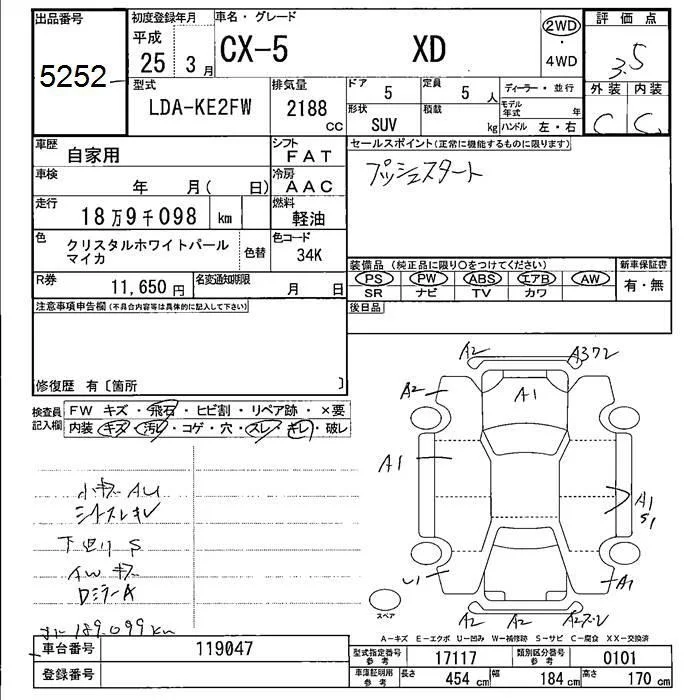 出品番号
5252
初度登録年月
平成
25 3 月
車名・グレード
CX-5 XD
2WD
・
4WD
評価点
3.5
外装 内装
C C
型式
LDA-KE2FW
排気量
2188
cc
ドア
5
定員
5 人
形状
SUV
積載
kg
ディーラー・並行
モデル年式 年
ハンドル 左・右
車歴
自家用
シフト
FAT
車検
年 月( 日)
冷房
AAC
走行
18万9千098 km
燃料
軽油
色
クリスタルホワイトパール
マイカ
色替
色コード
34K
R券
11,650 円
名変通知期限
月 日
セールスポイント(正常に機能するものに限ります)
プッシュスタート
装備品(純正品に限り○をつけてください)
PS PW ABS エアB AW
SR ナビ TV カワ
新車保証書
有・無
後日品
注意事項申告欄(不具合内容等は具体的に記入して下さい)
修復歴 有〔箇所 〕
検査員
記入欄
FW キズ・飛石・ヒビ割・リペア跡・×要
内装 キズ・汚レ・コゲ・穴・スレ・キレ・破レ
小キズ AU
シートスレキレ
下廻り S
AW キズ
ロミラーA
189.099km
A2 A372
A2 A1
A1
A1
S1
A1
A2 A2
スペア
A-キズ E-エクボ U-凹み W-補修跡 S-サビ C-腐食 XX-交換済
車台番号
119047
登録番号
型式指定番号
参考
17117
類別区分番号
参考
0101
車庫証明用
参考
長さ 454 cm 幅 184 cm 高さ 170 cm